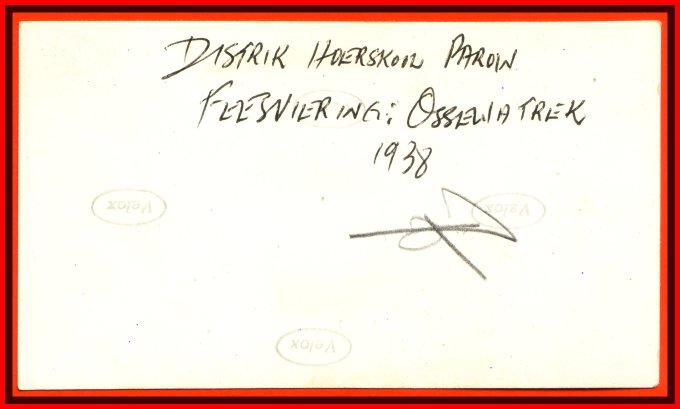 DISTRIK HOERSKOOL PAROW
FEESVIERING: OSSEWATREK
1938
Velox
Velox
Velox